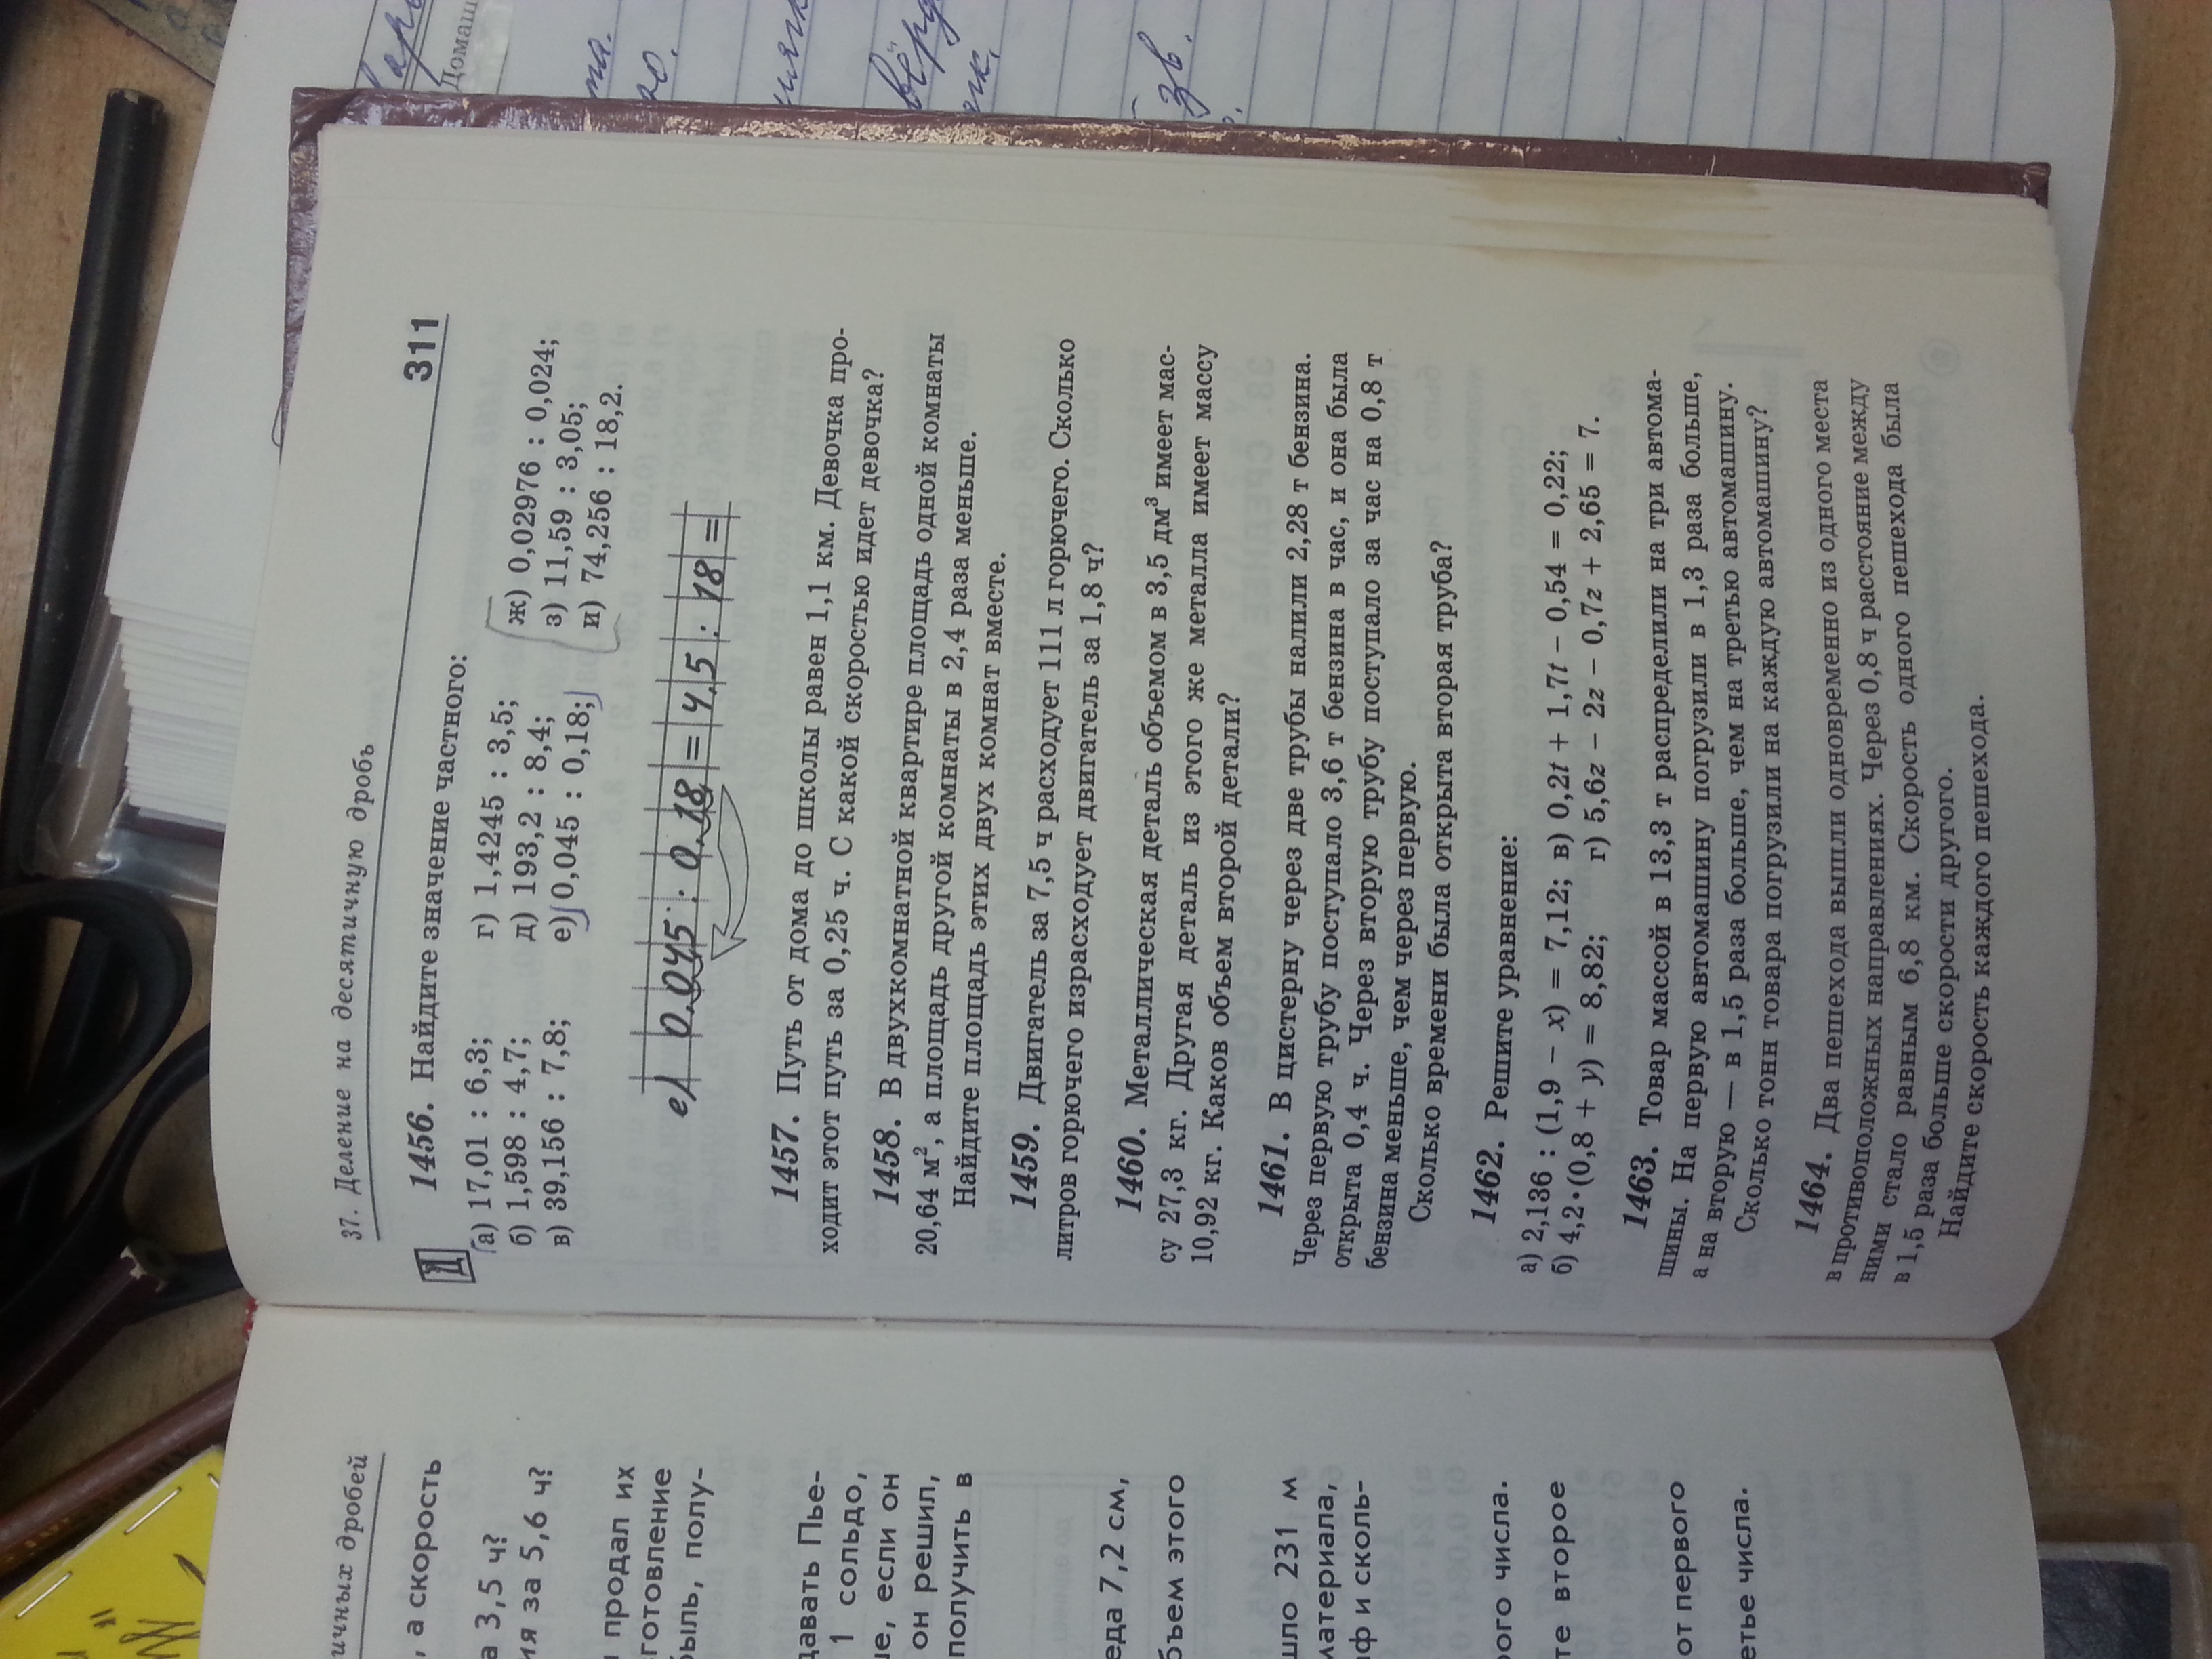 37. Деление на десятичную дробь 311
Д 1456. Найдите значение частного:
а) 17,01 : 6,3; г) 1,4245 : 3,5; ж) 0,02976 : 0,024;
б) 1,598 : 4,7; д) 193,2 : 8,4; з) 11,59 : 3,05;
в) 39,156 : 7,8; е) 0,045 : 0,18; и) 74,256 : 18,2.
е) 0,045 : 0,18 = 4,5 : 18 =
1457. Путь от дома до школы равен 1,1 км. Девочка про-
ходит этот путь за 0,25 ч. С какой скоростью идет девочка?
1458. В двухкомнатной квартире площадь одной комнаты
20,64 м², а площадь другой комнаты в 2,4 раза меньше.
Найдите площадь этих двух комнат вместе.
1459. Двигатель за 7,5 ч расходует 111 л горючего. Сколько
литров горючего израсходует двигатель за 1,8 ч?
1460. Металлическая деталь объемом в 3,5 дм³ имеет мас-
су 27,3 кг. Другая деталь из этого же металла имеет массу
10,92 кг. Каков объем второй детали?
1461. В цистерну через две трубы налили 2,28 т бензина.
Через первую трубу поступало 3,6 т бензина в час, и она была
открыта 0,4 ч. Через вторую трубу поступало за час на 0,8 т
бензина меньше, чем через первую.
Сколько времени была открыта вторая труба?
1462. Решите уравнение:
а) 2,136 : (1,9 − x) = 7,12; в) 0,2t + 1,7t − 0,54 = 0,22;
б) 4,2 · (0,8 + y) = 8,82; г) 5,6z − 2z − 0,7z + 2,65 = 7.
1463. Товар массой в 13,3 т распределили на три автома-
шины. На первую автомашину погрузили в 1,3 раза больше,
а на вторую — в 1,5 раза больше, чем на третью автомашину.
Сколько тонн товара погрузили на каждую автомашину?
1464. Два пешехода вышли одновременно из одного места
в противоположных направлениях. Через 0,8 ч расстояние между
ними стало равным 6,8 км. Скорость одного пешехода была
в 1,5 раза больше скорости другого.
Найдите скорость каждого пешехода.
ичных дробей
, а скорость
а 3,5 ч?
ия за 5,6 ч?
продал их
готовление
быль, полу-
давать Пье-
1 сольдо,
е, если он
он решил,
получить в
еда 7,2 см,
бъем этого
шло 231 м
материала,
аф и сколь-
ого числа.
те второе
от первого
етье числа.
Домаш
зв.